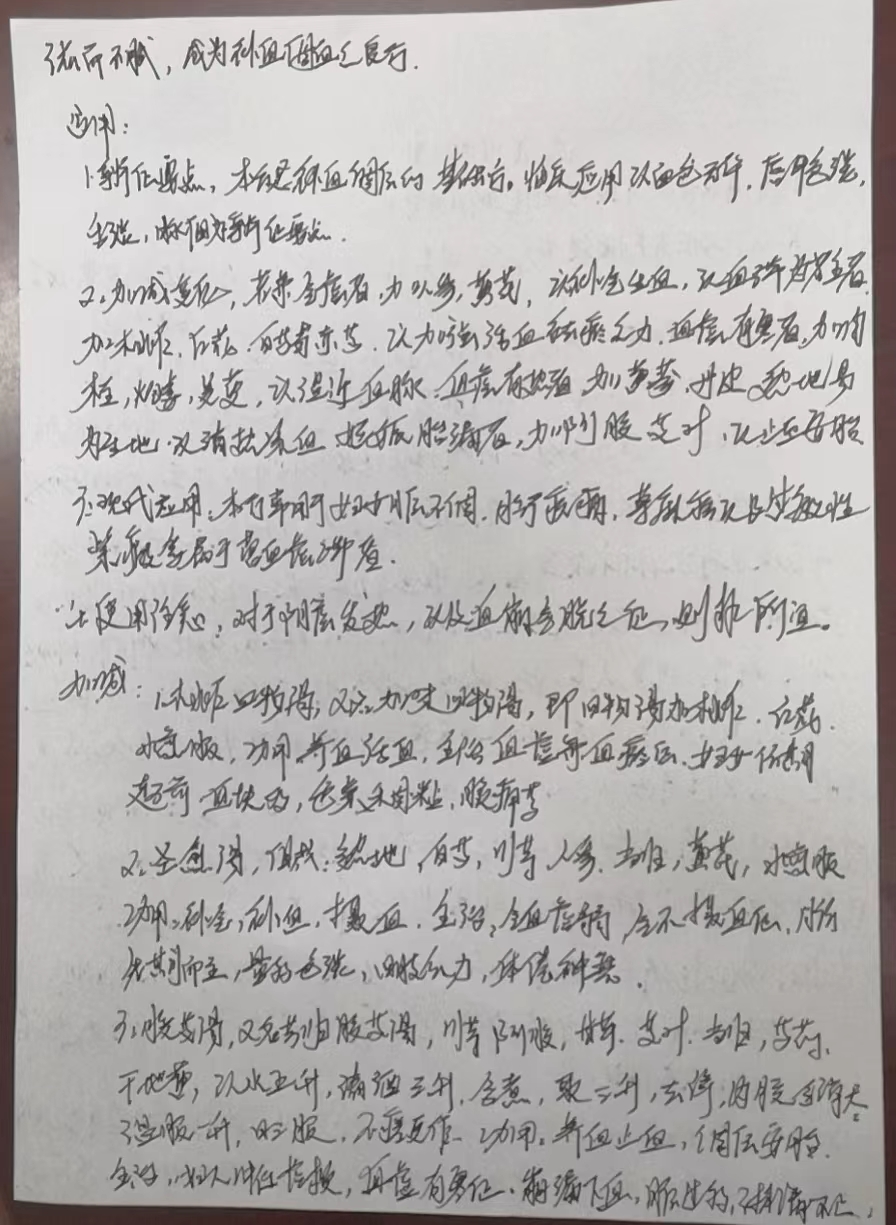 而不腻，成为补血调血之良方.
运用：
1.辨证要点，本方是补血调经的基础方。临床应用以面色无华，唇甲色淡，
舌淡，脉细为辨证要点.
2.加减变化，若兼气虚者，加人参，黄芪，以补气生血，以血滞为主者
加桃仁.红花.白芍易赤芍.以加强活血祛瘀之力.血虚有寒者，加肉
桂，炮姜，吴萸，以温通血脉.血虚有热者 加黄芩.丹皮.熟地易
为生地.以清热凉血 妊娠胎漏者，加阿胶 艾叶.以止血安胎
3.现代应用.本方常用于妇女月经不调.胎产疾病.荨麻疹以及过敏性
紫癜等属于营血虚滞者.
4.使用注意：对于阴虚发热，以及血崩气脱之证，则非所宜。
加减：1.桃红四物汤，又云.加味四物汤，即四物汤加桃仁.红花.
水煎服，功用.养血活血，主治血虚兼血瘀证.妇女经期
超前 血块多，色紫稠粘，腹痛等
2.圣愈汤，组成：熟地，白芍，川芎 人参.当归，黄芪，水煎服
功用：补气，补血，摄血.主治：气血虚弱，气不摄血证.月经
先期而至，量多色淡，四肢乏力，体倦神衰.
3.胶艾汤，又名芎归胶艾汤，川芎 阿胶，甘草.艾叶.当归，芍药.
干地黄，以水五升，清酒三升，合煮，取三升，去滓，内胶令消尽
温服一升，日三服.不瘥更作.功用：养血止血，调经安胎.
主治：妇人冲任虚损，血虚有寒证.崩漏下血，月经过多，淋漓不止.